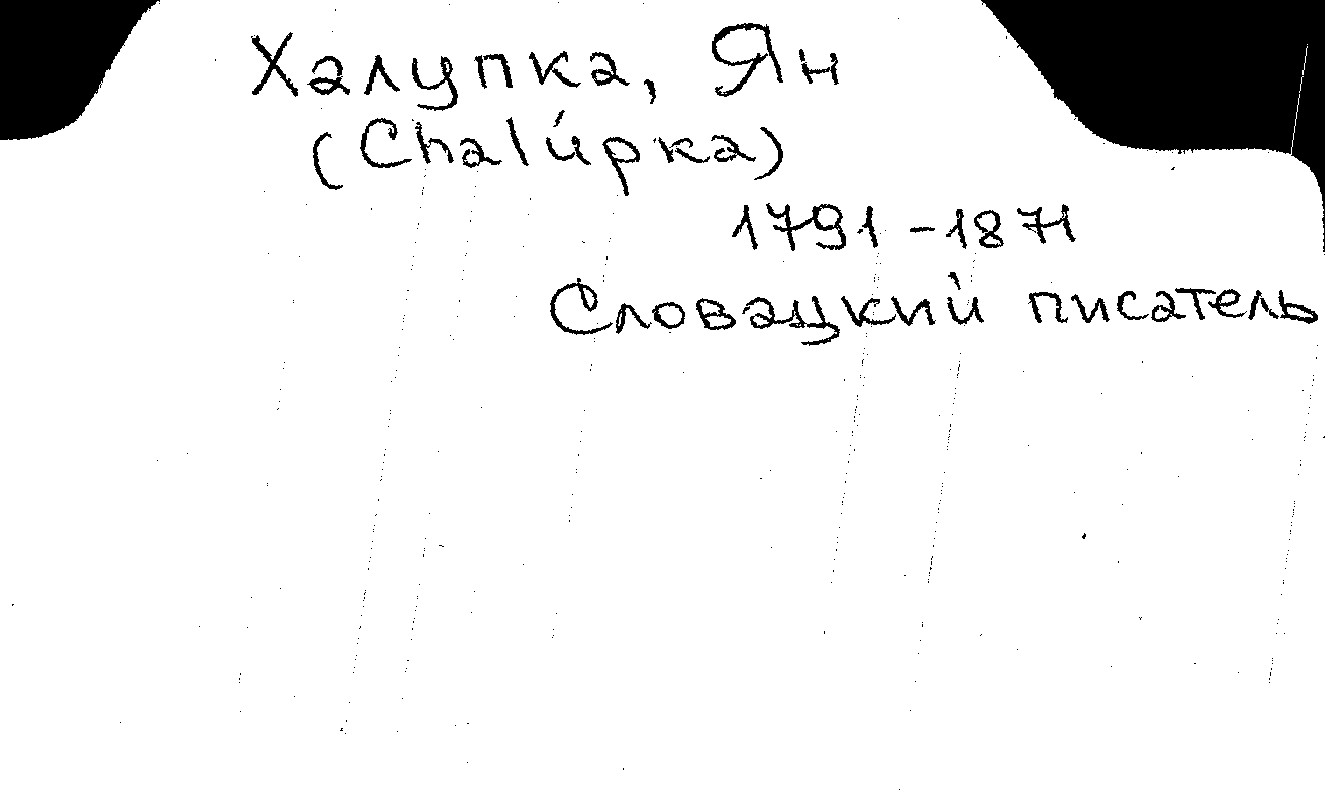 Халупка, Ян
(Chalúpka)
1791-1871
Словацкий писатель